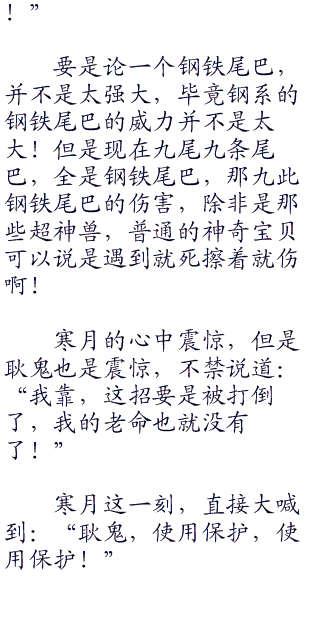 ！”
要是论一个钢铁尾巴，
并不是太强大，毕竟钢系的
钢铁尾巴的威力并不是太
大！但是现在九尾九条尾
巴，全是钢铁尾巴，那九此
钢铁尾巴的伤害，除非是那
些超神兽，普通的神奇宝贝
可以说是遇到就死擦着就伤
啊！
寒月的心中震惊，但是
耿鬼也是震惊，不禁说道：
“我靠，这招要是被打倒
了，我的老命也就没有
了！”
寒月这一刻，直接大喊
到：“耿鬼，使用保护，使
用保护！”